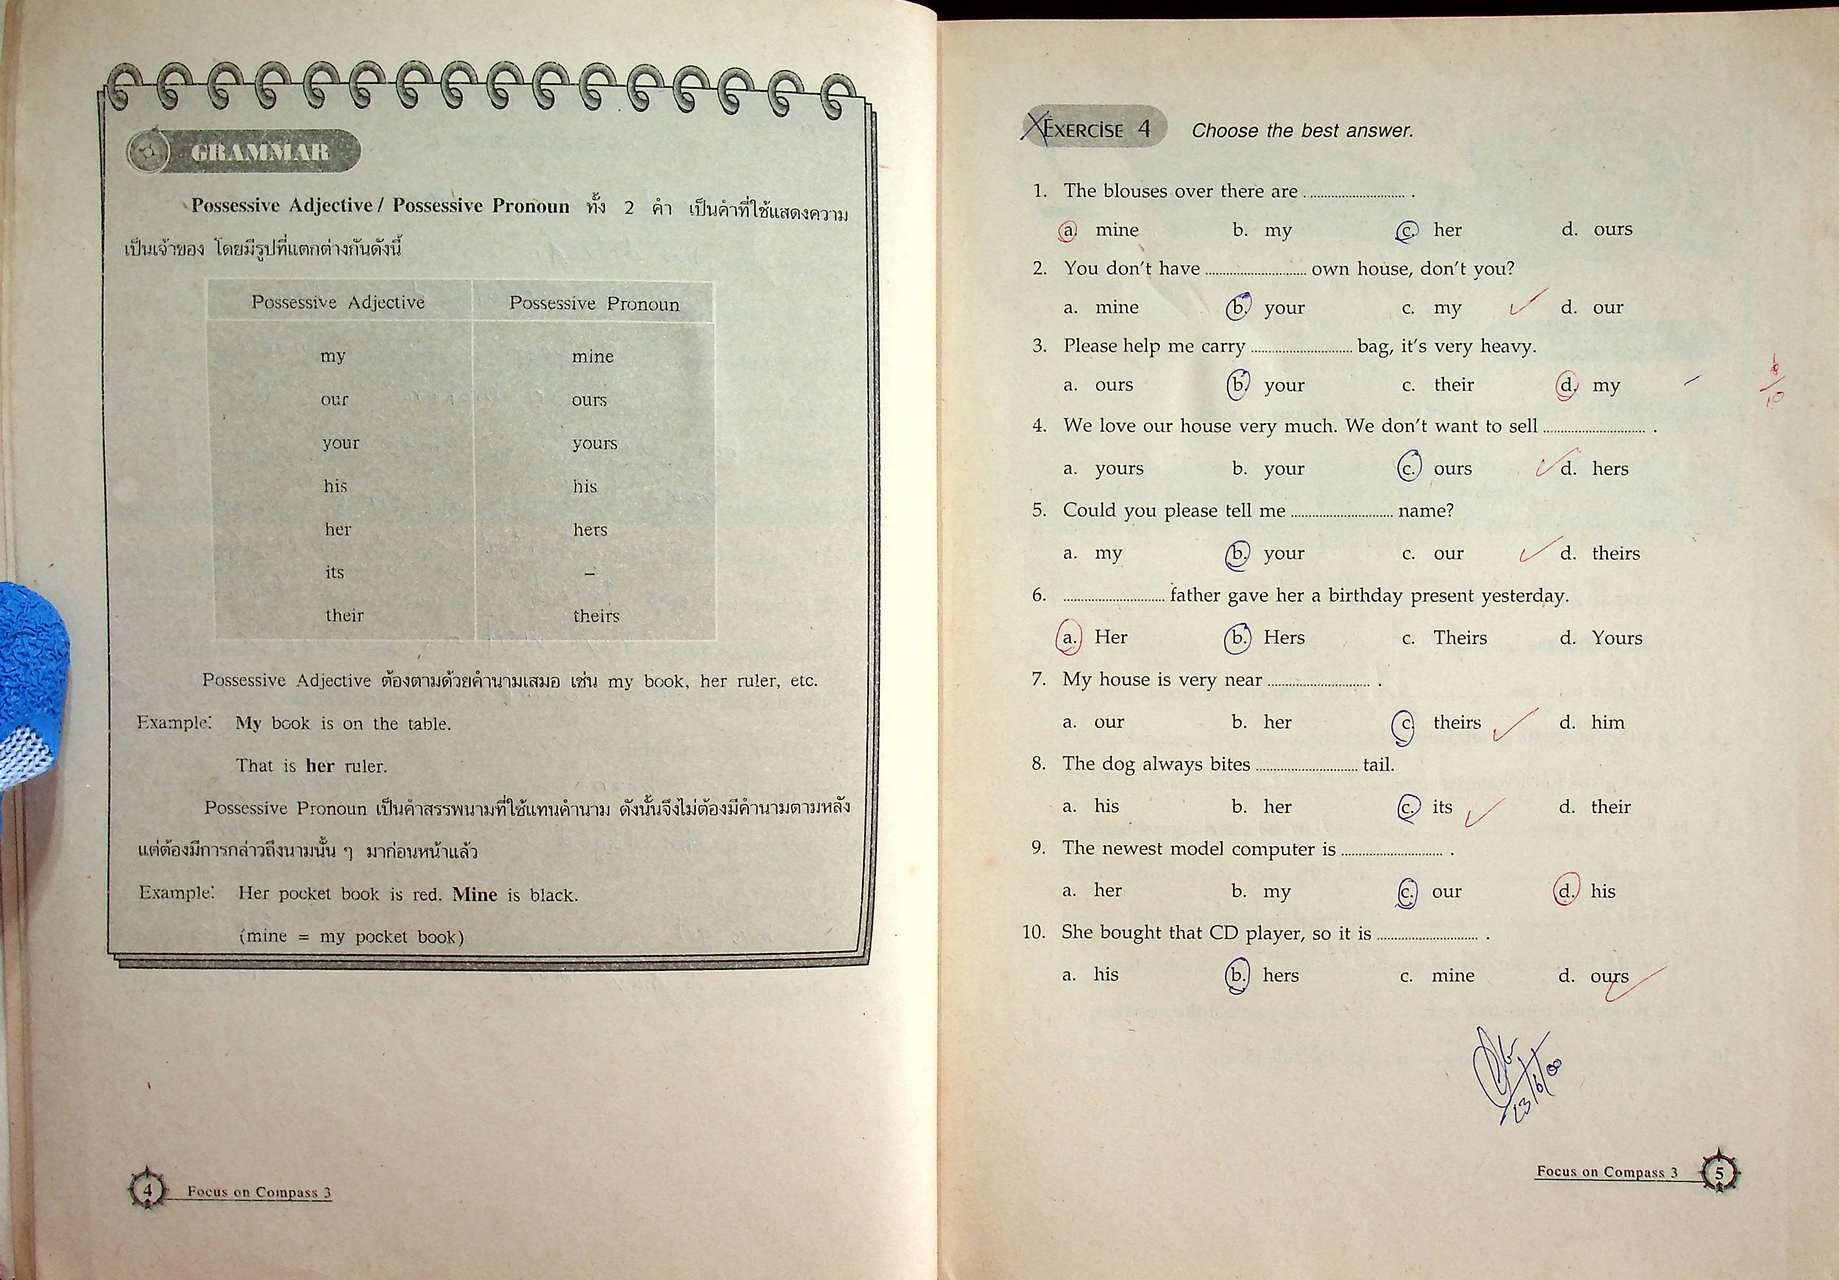 GRAMMAR
Possessive Adjective / Possessive Pronoun ทั้ง 2 คำ เป็นคำที่ใช้แสดงความ
เป็นเจ้าของ โดยมีรูปที่แตกต่างกันดังนี้
Possessive Adjective Possessive Pronoun
my mine
our ours
your yours
his his
her hers
its –
their theirs
Possessive Adjective ต้องตามด้วยคำนามเสมอ เช่น my book, her ruler, etc.
Example: My book is on the table.
That is her ruler.
Possessive Pronoun เป็นคำสรรพนามที่ใช้แทนคำนาม ดังนั้นจึงไม่ต้องมีคำนามตามหลัง
แต่ต้องมีการกล่าวถึงนามนั้น ๆ มาก่อนหน้าแล้ว
Example: Her pocket book is red. Mine is black.
(mine = my pocket book)
4 Focus on Compass 3
EXERCISE 4 Choose the best answer.
1. The blouses over there are .......................... .
a. mine b. my c. her d. ours
2. You don't have .......................... own house, don't you?
a. mine b. your c. my d. our
3. Please help me carry .......................... bag, it's very heavy.
a. ours b. your c. their d. my
4. We love our house very much. We don't want to sell .......................... .
a. yours b. your c. ours d. hers
5. Could you please tell me .......................... name?
a. my b. your c. our d. theirs
6. .......................... father gave her a birthday present yesterday.
a. Her b. Hers c. Theirs d. Yours
7. My house is very near .......................... .
a. our b. her c. theirs d. him
8. The dog always bites .......................... tail.
a. his b. her c. its d. their
9. The newest model computer is .......................... .
a. her b. my c. our d. his
10. She bought that CD player, so it is .......................... .
a. his b. hers c. mine d. ours
23/6/00
Focus on Compass 3 5